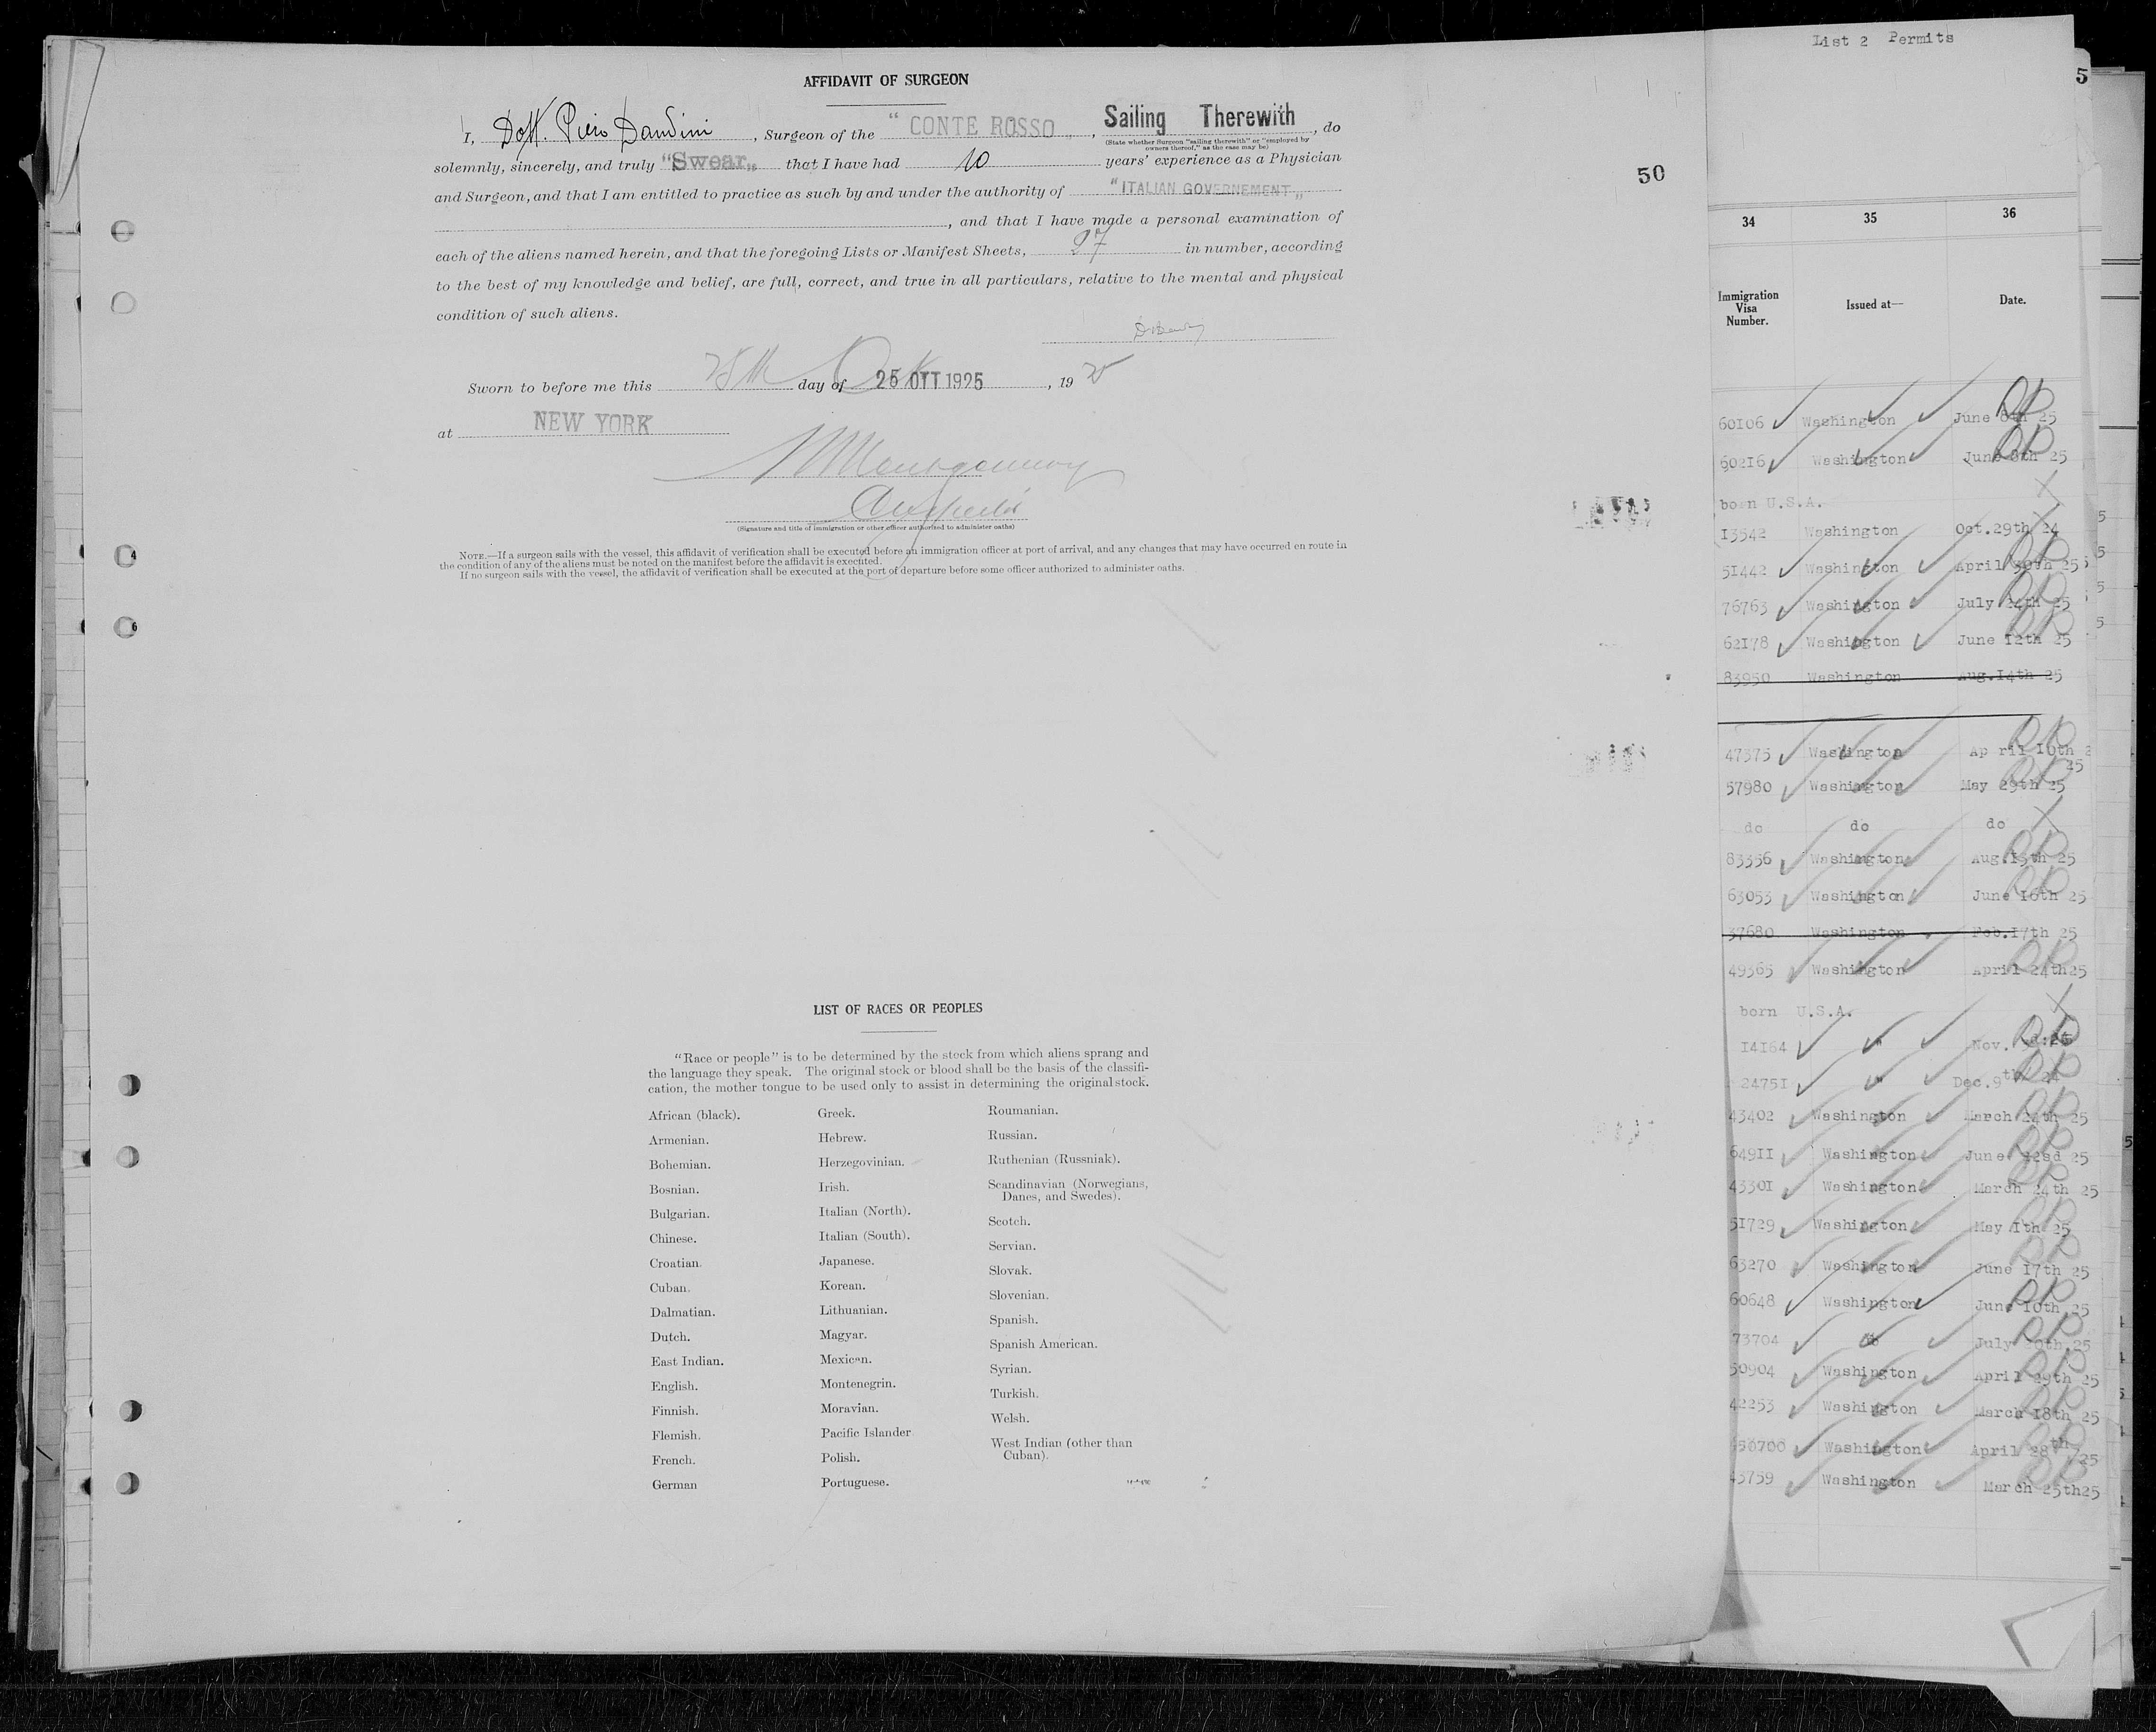 AFFIDAVIT OF SURGEON
I, Dott. Piero Dandini, Surgeon of the "CONTE ROSSO", Sailing Therewith, do
(State whether Surgeon "sailing therewith" or "employed by
owners thereof," as the case may be)
solemnly, sincerely, and truly "Swear" that I have had 10 years' experience as a Physician
and Surgeon, and that I am entitled to practice as such by and under the authority of "ITALIAN GOVERNEMENT"
, and that I have made a personal examination of
each of the aliens named herein, and that the foregoing Lists or Manifest Sheets, 27 in number, according
to the best of my knowledge and belief, are full, correct, and true in all particulars, relative to the mental and physical
condition of such aliens.
Sworn to before me this 25th day of Oct 25 OTT 1925, 19 25
at NEW YORK
Montgomery
(Signature and title of immigration or other officer authorized to administer oaths)
NOTE.—If a surgeon sails with the vessel, this affidavit of verification shall be executed before an immigration officer at port of arrival, and any changes that may have occurred en route in
the condition of any of the aliens must be noted on the manifest before the affidavit is executed.
If no surgeon sails with the vessel, the affidavit of verification shall be executed at the port of departure before some officer authorized to administer oaths.
50
LIST OF RACES OR PEOPLES
"Race or people" is to be determined by the stock from which aliens sprang and
the language they speak. The original stock or blood shall be the basis of the classifi-
cation, the mother tongue to be used only to assist in determining the original stock.
African (black).
Armenian.
Bohemian.
Bosnian.
Bulgarian.
Chinese.
Croatian.
Cuban.
Dalmatian.
Dutch.
East Indian.
English.
Finnish.
Flemish.
French.
German
Greek.
Hebrew.
Herzegovinian.
Irish.
Italian (North).
Italian (South).
Japanese.
Korean.
Lithuanian.
Magyar.
Mexican.
Montenegrin.
Moravian.
Pacific Islander
Polish.
Portuguese.
Roumanian.
Russian.
Ruthenian (Russniak).
Scandinavian (Norwegians,
Danes, and Swedes).
Scotch.
Servian.
Slovak.
Slovenian.
Spanish.
Spanish American.
Syrian.
Turkish.
Welsh.
West Indian (other than
Cuban).
List 2 Permits
5
34 35 36
Immigration
Visa
Number.
Issued at—
Date.
60106 Washington June 8th 25
60216 Washington June 8th 25
born U.S.A.
13542 Washington Oct.29th 24
51442 Washington April 30th 25
76763 Washington July 24th 25
62178 Washington June 12th 25
83950 Washington Aug.14th 25
47375 Washington April 10th 25
57980 Washington May 29th 25
do do do
83356 Washington Aug.13th 25
63053 Washington June 16th 25
37680 Washington Feb.17th 25
49365 Washington April 24th25
born U.S.A.
14164 " Nov.
24751 " Dec.9th 24
43402 Washington March 24th 25
64911 Washington June 22nd 25
43301 Washington March 24th 25
51729 Washington May 1th 25
63270 Washington June 17th 25
60648 Washington June 10th 25
73704 do July 25
50904 Washington April 29th 25
42253 Washington March 18th 25
50700 Washington April 28th 25
43759 Washington March 25th25